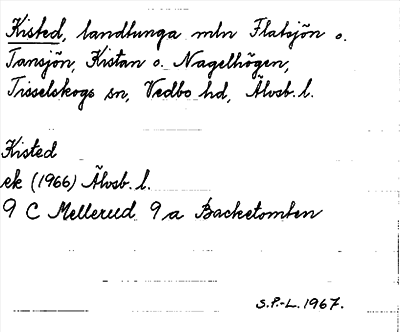 Kisted, landtunga mln Flatsjön o.
Tansjön, Kistan o. Nagelhögen,
Tisselskogs sn, Vedbo hd, Älvsb. l.
Kisted
ek (1966) Älvsb. l.
9 C Mellerud 9 a Backetomten
S.P.-L. 1967.